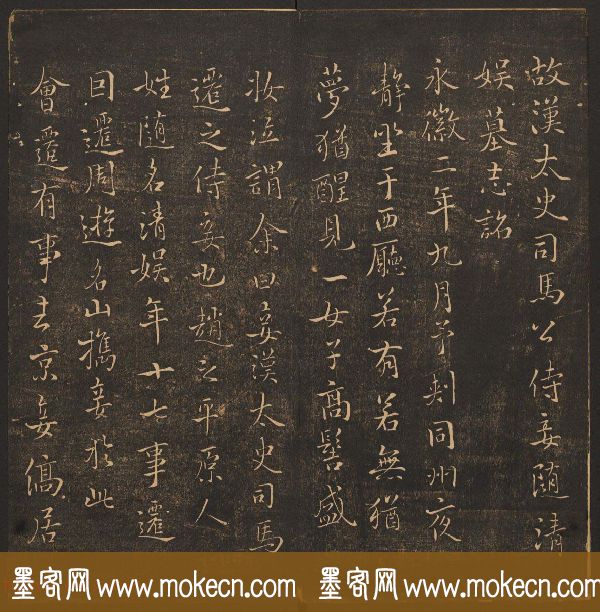 故漢太史司馬公侍妾隨清
娱墓志銘
永徽二年九月予刺同州夜
靜坐于西廳若有若無猶
夢猶醒見一女子高髻盛
妝泣謂余曰妾漢太史司馬
遷之侍妾也趙之平原人
姓隨名清娱年十七事遷
因遷周遊名山攜妾於此
會遷有事去京妾僑居
墨客网 www.mokecn.com 墨客网 www.mokecn.com